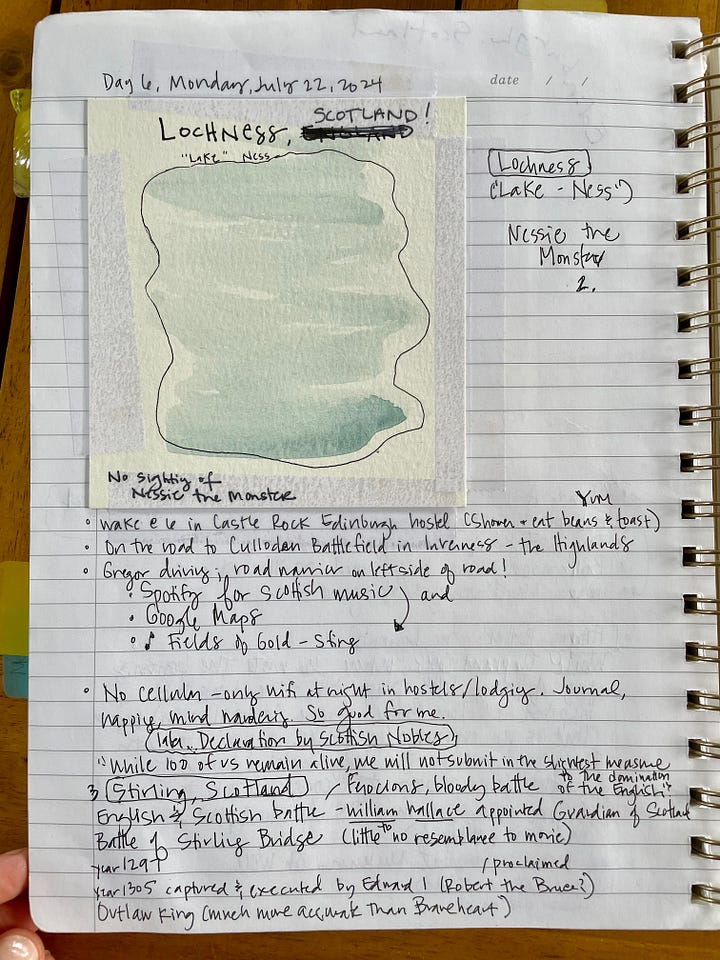 Day 6, Monday, July 22, 2024
date / /
SCOTLAND!
LOCHNESS,
"LAKE" NESS
Lochness
("Lake - Ness")
Nessie the
Monster
2.
No sighting of
Nessie the Monster
Yum
• wake @ 6 in Castle Rock Edinburgh hostel (shower + eat beans & toast)
• On the road to Culloden Battlefield in Inverness - the Highlands
• Gregor driving; road narrow on left side of road!
• Spotify for Scottish music and
• Google Maps
• ♪ Fields of Gold - Sting
• No cellular - only wifi at night in hostels/lodging. Journal,
napping, mind wandering. So good for me.
Declaration by Scottish Nobles
"While 100 of us remain alive, we will not submit in the slightest measure
to the domination
of the English"
3 Stirling, Scotland / Ferocious, bloody battle
English & Scottish battle - William Wallace appointed Guardian of Scotland
Battle of Stirling Bridge (little to no resemblance to movie)
year 1297
/proclaimed
year 1305 captured & executed by Edward I (Robert the Bruce?)
Outlaw King (much more accurate than Braveheart")